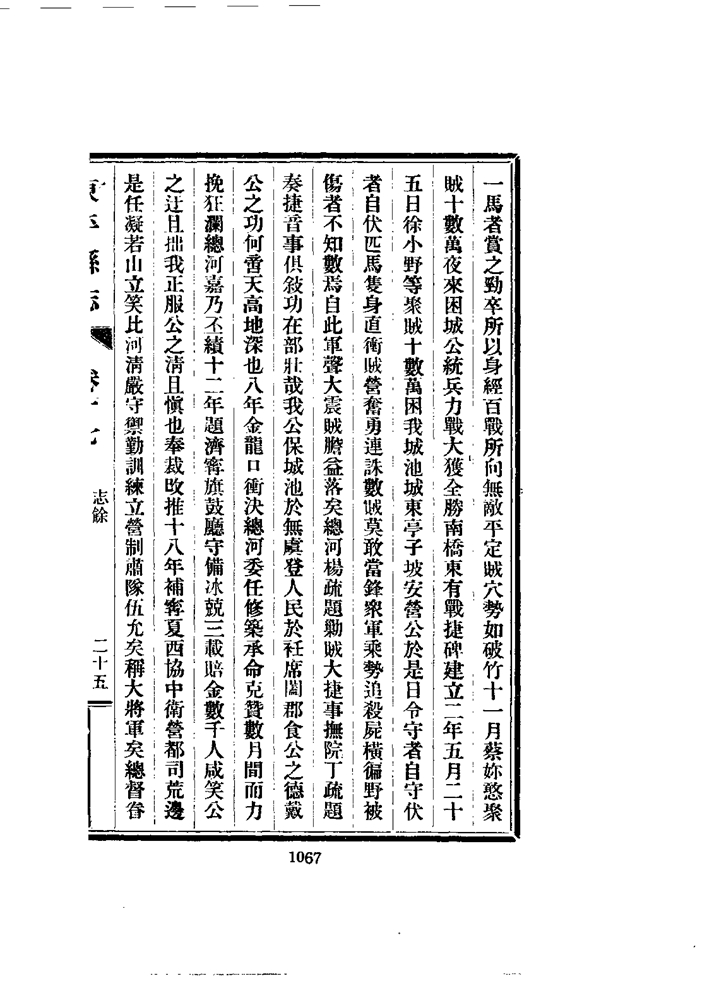 一馬者賞之勁卒所以身經百戰所向無敵平定賊穴勢如破竹十一月蔡妳憨聚
賊十數萬夜來困城公統兵力戰大獲全勝南橋東有戰捷碑建立二年五月二十
五日徐小野等聚賊十數萬困我城池城東亭子坡安營公於是日令守者自守伏
者自伏匹馬隻身直衝賊營奮勇連誅數賊莫敢當鋒衆軍乘勢追殺屍橫徧野被
傷者不知數焉自此軍聲大震賊膽益落矣總河楊疏題勦賊大捷事撫院丁疏題
奏捷音事俱敍功在部壯哉我公保城池於無虞登人民於衽席闔郡食公之德戴
公之功何啻天高地深也八年金龍口衝決總河委任修築承命克贊數月間而力
挽狂瀾總河嘉乃丕績十二年題濟寗旗鼓廳守備冰兢三載賠金數千人咸笑公
之迂且拙我正服公之淸且愼也奉裁改推十八年補寗夏西協中衛營都司荒邊
是任凝若山立笑比河淸嚴守禦勤訓練立營制肅隊伍允矣稱大將軍矣總督眷
東平縣志 卷十七 志餘 二十五
1067